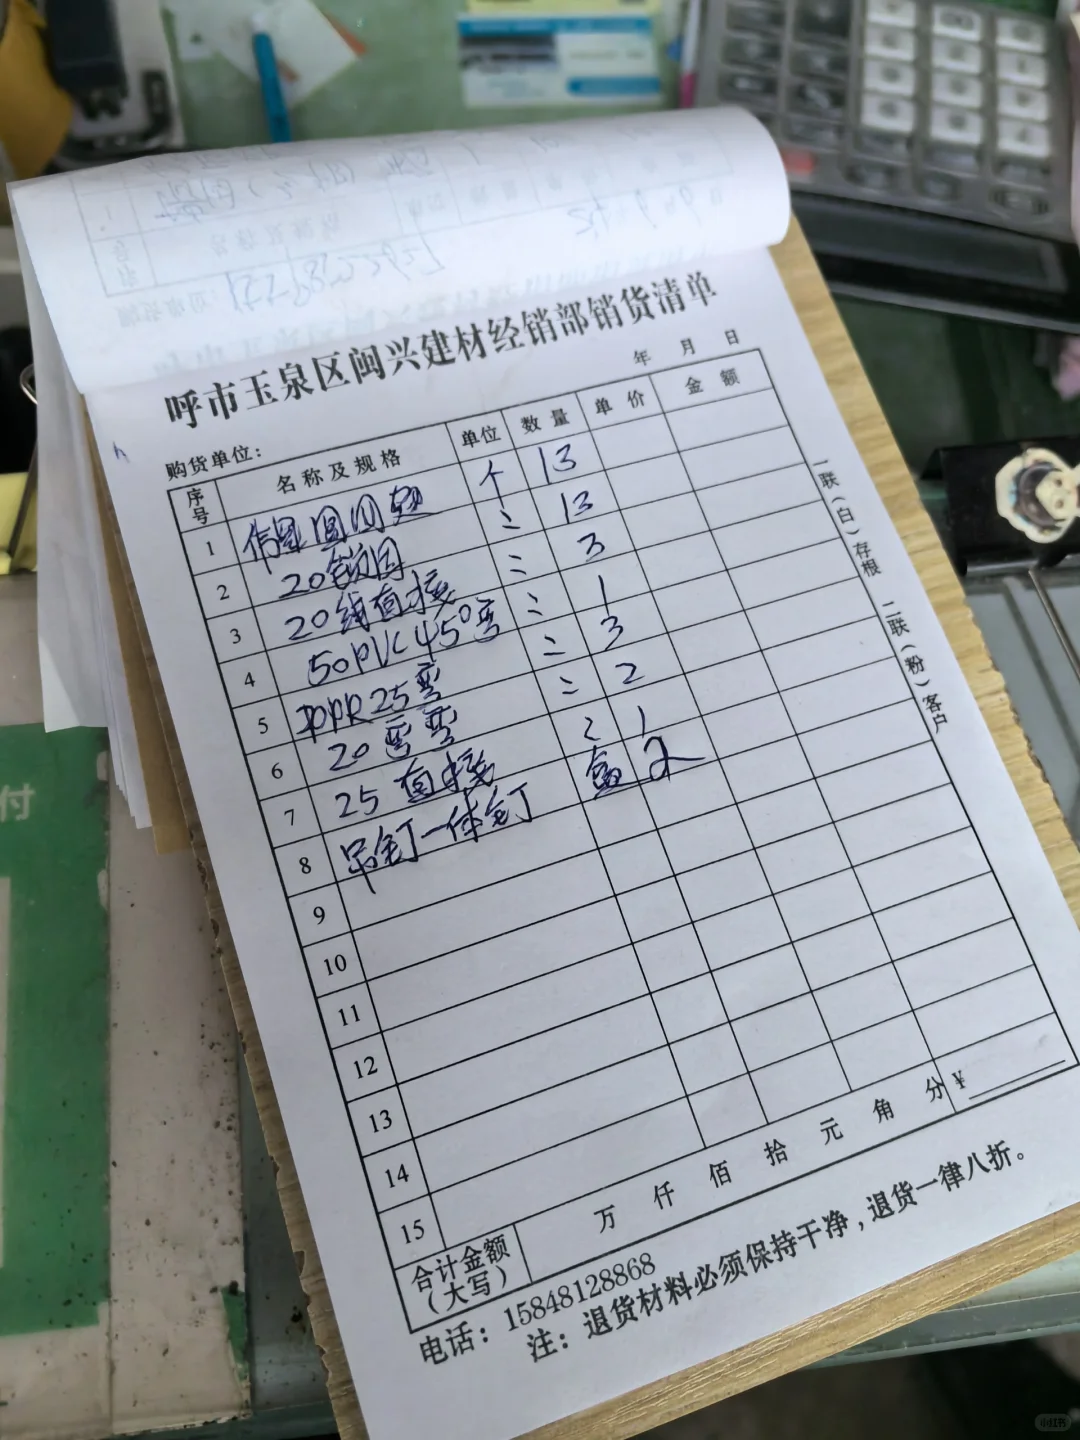 呼市玉泉区闽兴建材经销部销货清单
年 月 日
购货单位：
序号 名称及规格 单位 数量 单价 金额
1 个 13
2 20锁母 〃 13
3 20线直接 〃 3
4 50PVC45°弯 〃 1
5 PPR25弯 〃 3
6 20弯 〃 2
7 25直接 〃 1
8 吊钉一体钉 盒 2
9
10
11
12
13
14
15
合计金额（大写） 万 仟 佰 拾 元 角 分 ¥
电话：15848128868
注：退货材料必须保持干净，退货一律八折。
一联（白）存根 二联（粉）客户
付
小红书